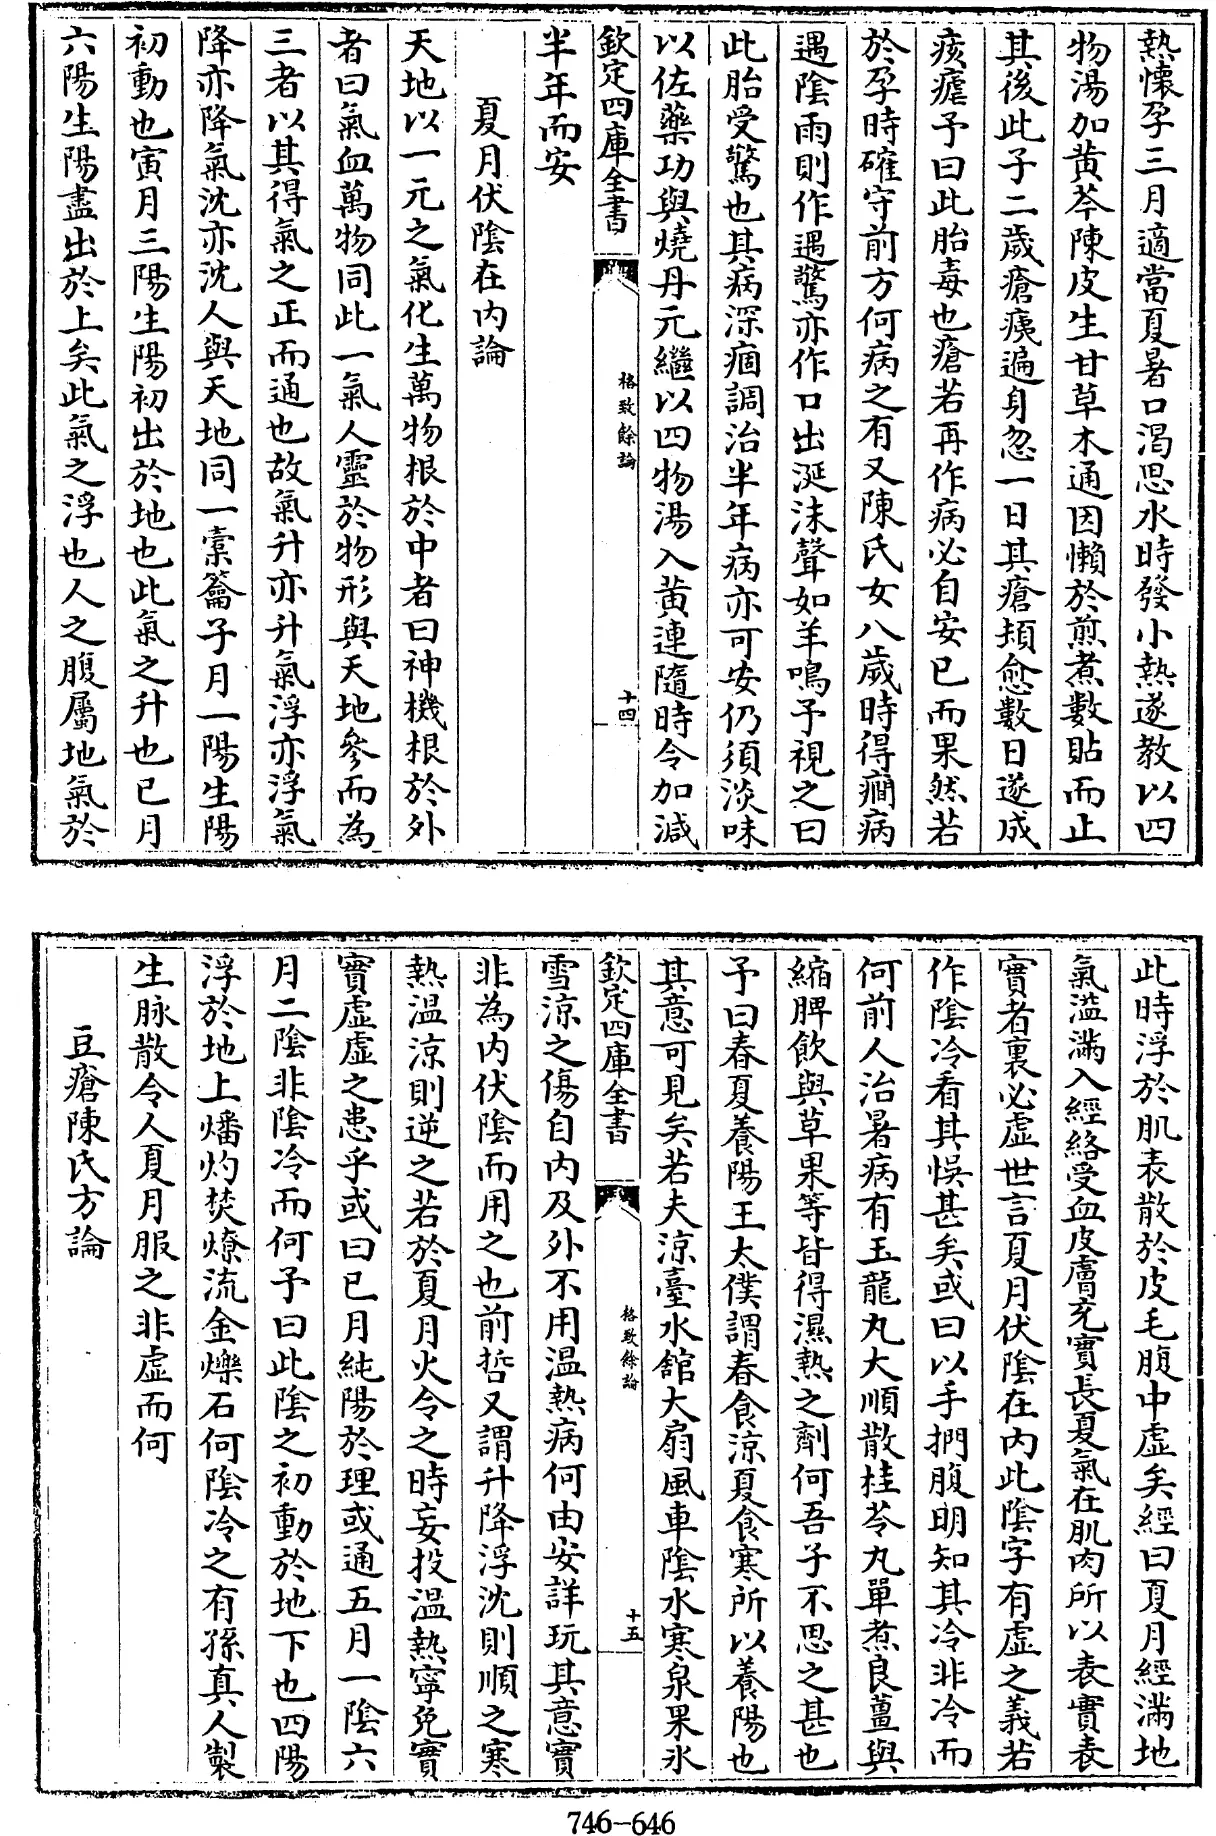 熱懐孕三月適當夏暑口渴思水時發小熱遂教以四
物湯加黄芩陳皮生甘草木通因懶於煎煮數貼而止
其後此子二歲瘡痍遍身忽一日其瘡頓愈數日遂成
痎瘧予曰此胎毒也瘡若再作病必自安已而果然若
於孕時確守前方何病之有又陳氏女八歲時得癎病
遇陰雨則作遇驚亦作口出涎沫聲如羊鳴予視之曰
此胎受驚也其病深痼調治半年病亦可安仍須淡味
以佐藥功與燒丹元繼以四物湯入黄連隨時令加減
欽定四庫全書
格致餘論
十四
半年而安
夏月伏陰在内論
天地以一元之氣化生萬物根於中者曰神機根於外
者曰氣血萬物同此一氣人靈於物形與天地參而為
三者以其得氣之正而通也故氣升亦升氣浮亦浮氣
降亦降氣沈亦沈人與天地同一橐籥子月一陽生陽
初動也寅月三陽生陽初出於地也此氣之升也巳月
六陽生陽盡出於上矣此氣之浮也人之腹屬地氣於
此時浮於肌表散於皮毛腹中虛矣經曰夏月經滿地
氣溢滿入經絡受血皮膚充實長夏氣在肌肉所以表實表
實者裏必虛世言夏月伏陰在内此陰字有虛之義若
作陰冷看其悞甚矣或曰以手捫腹明知其冷非冷而
何前人治暑病有玉龍丸大順散桂苓丸單煮良薑與
縮脾飲與草果等皆得濕熱之劑何吾子不思之甚也
予曰春夏養陽王太僕謂春食涼夏食寒所以養陽也
其意可見矣若夫涼臺水館大扇風車陰水寒泉果氷
欽定四庫全書
格致餘論
十五
雪涼之傷自内及外不用温熱病何由安詳玩其意實
非為内伏陰而用之也前哲又謂升降浮沈則順之寒
熱温涼則逆之若於夏月火令之時妄投温熱寧免實
實虛虛之患乎或曰巳月純陽於理或通五月一陰六
月二陰非陰冷而何予曰此陰之初動於地下也四陽
浮於地上燔灼焚燎流金爍石何陰冷之有孫真人製
生脉散令人夏月服之非虛而何
豆瘡陳氏方論
746-646